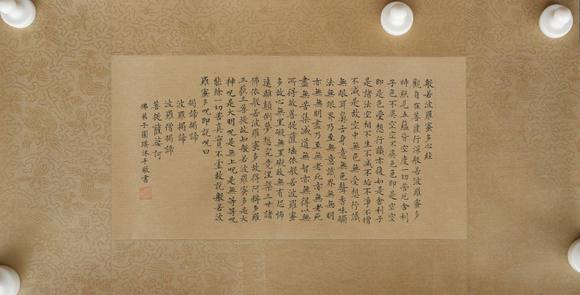 般若波羅蜜多心經
觀自在菩薩行深般若波羅蜜多
時照見五蘊皆空度一切苦厄舍利
子色不異空空不異色色即是空空
即是色受想行識亦復如是舍利子
是諸法空相不生不滅不垢不淨不增
不減是故空中無色無受想行識
無眼耳鼻舌身意無色聲香味觸
法無眼界乃至無意識界無無明
亦無無明盡乃至無老死亦無老死
盡無苦集滅道無智亦無得以無
所得故菩提薩埵依般若波羅蜜
多故心無罣礙無罣礙故無有恐怖
遠離顛倒夢想究竟涅槃三世諸
佛依般若波羅蜜多故得阿耨多羅
三藐三菩提故知般若波羅蜜多是大
神呪是大明呪是無上呪是無等等呪
能除一切苦真實不虛故說般若波
羅蜜多呪即說呪曰
揭諦揭諦
波羅揭諦
波羅僧揭諦
菩提薩婆訶
佛弟子沐手敬書